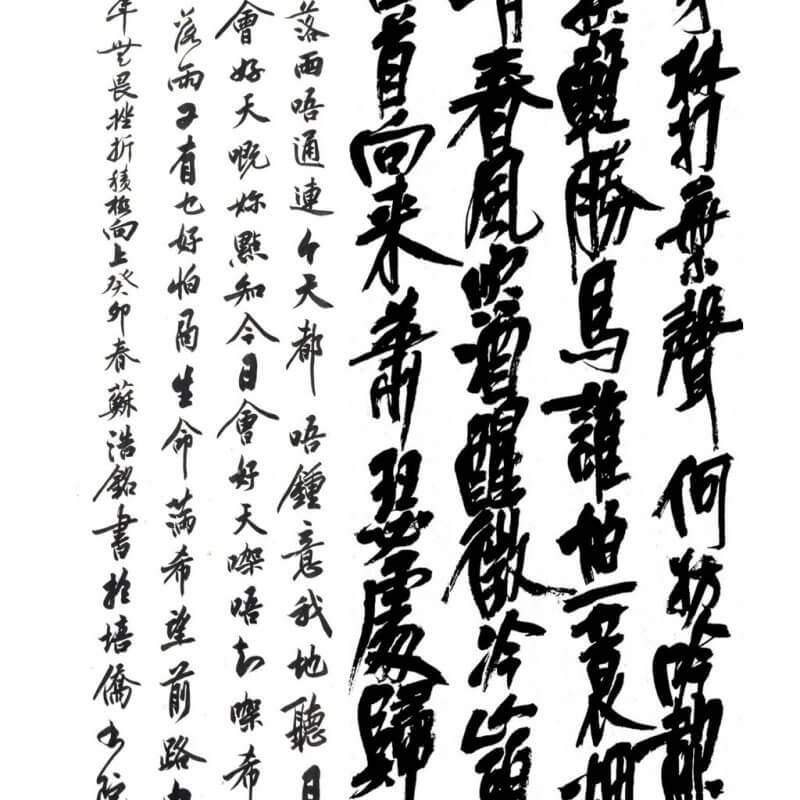 穿林打葉聲何妨吟嘯
鞋輕勝馬誰怕一蓑烟
峭春風吹酒醒微冷山頭
回首向来蕭瑟處歸
落雨唔通連个天都唔鍾意我地聽日
會好天嘅妳點知今日會好天㗎唔知㗎希
落雨又有乜好怕生命滿希望前路
年無畏挫折積極向上癸卯春蘇浩銘書於培僑书院